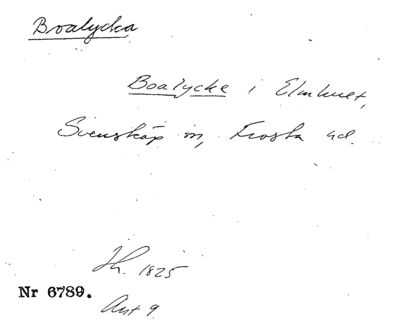 Boalycka
Boalycke i Elmhult,
Svensköp sn, Frosta hd.
Jh. 1825
Nr 6789.
Ant 9